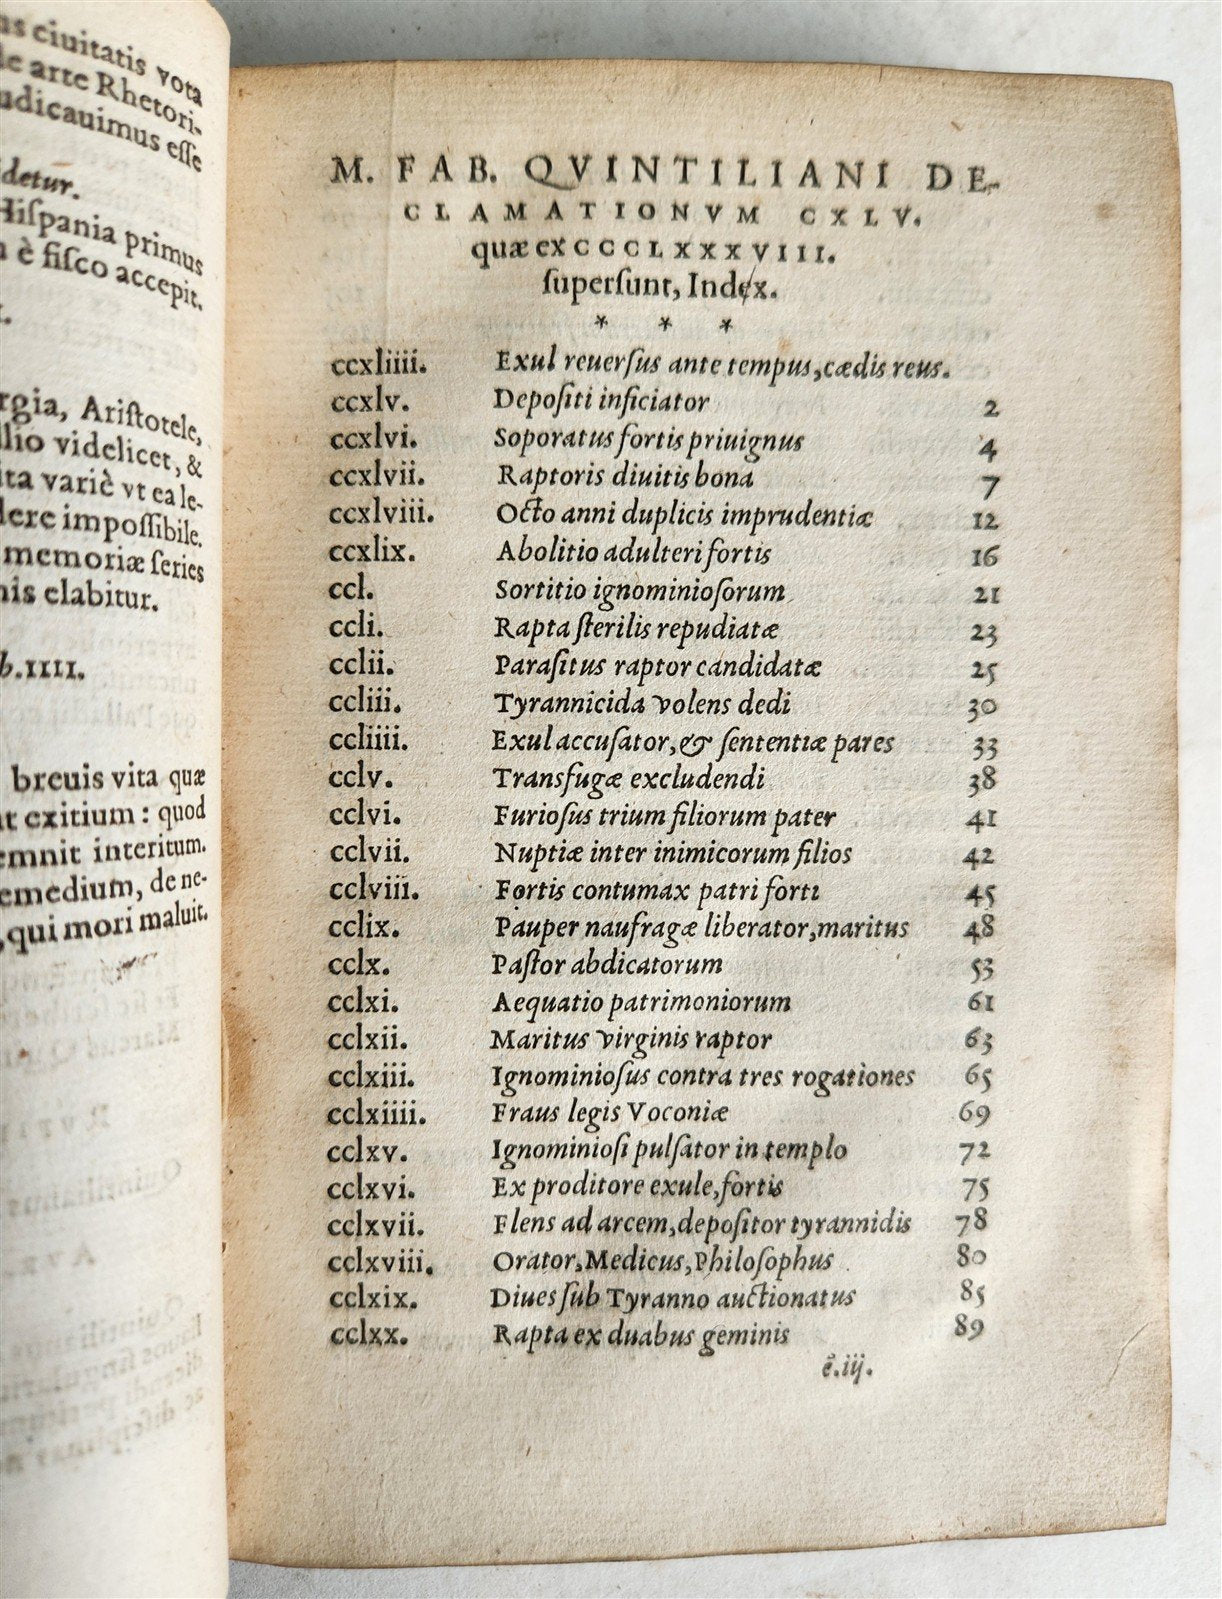 us ciuitatis vota
de arte Rhetori-
udicauimus esse
detur.
Hiſpania primus
è fiſco accepit.
rgia, Ariſtotele,
llio videlicet, &
ita variè vt ea le-
dere impoſſibile.
memoriæ ſeries
nis elabitur.
b. IIII.
breuis vita quæ
at exitium: quod
emnit interitum.
emedium, de ne-
, qui mori maluit.
M. FAB. QVINTILIANI DE-
CLAMATIONVM CXLV.
quæ ex CCCLXXXVIII.
ſuperſunt, Index.
* * *
ccxliiii. Exul reuerſus ante tempus, cædis reus.
ccxlv. Depoſiti inficiator 2
ccxlvi. Soporatus fortis priuignus 4
ccxlvii. Raptoris diuitis bona 7
ccxlviii. Octo anni duplicis imprudentiæ 12
ccxlix. Abolitio adulteri fortis 16
ccl. Sortitio ignominioſorum 21
ccli. Rapta ſterilis repudiatæ 23
cclii. Paraſitus raptor candidatæ 25
ccliii. Tyrannicida volens dedi 30
ccliiii. Exul accuſator, & ſententiæ pares 33
cclv. Transfugæ excludendi 38
cclvi. Furioſus trium filiorum pater 41
cclvii. Nuptiæ inter inimicorum filios 42
cclviii. Fortis contumax patri forti 45
cclix. Pauper naufragæ liberator, maritus 48
cclx. Paſtor abdicatorum 53
cclxi. Aequatio patrimoniorum 61
cclxii. Maritus virginis raptor 63
cclxiii. Ignominioſus contra tres rogationes 65
cclxiiii. Fraus legis Voconiæ 69
cclxv. Ignominioſi pulſator in templo 72
cclxvi. Ex proditore exule, fortis 75
cclxvii. Flens ad arcem, depoſitor tyrannidis 78
cclxviii. Orator, Medicus, Philoſophus 80
cclxix. Diues ſub Tyranno auctionatus 85
cclxx. Rapta ex duabus geminis 89
ē.iij.